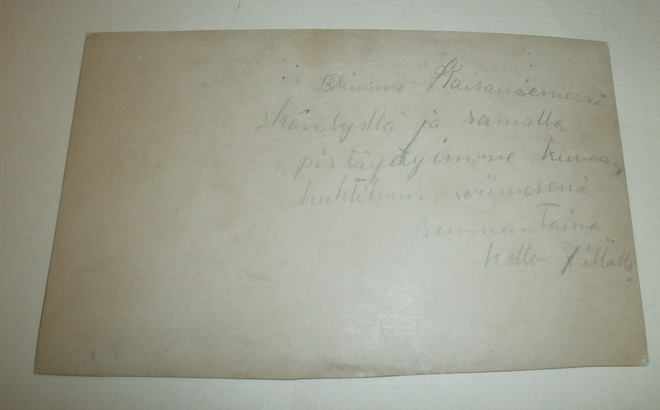 Olimme Kaisaniemessä
kävelyllä ja samalla
pistäydyimme kuvaan,
huhtikuun viimesenä
sunnuntaina
kello